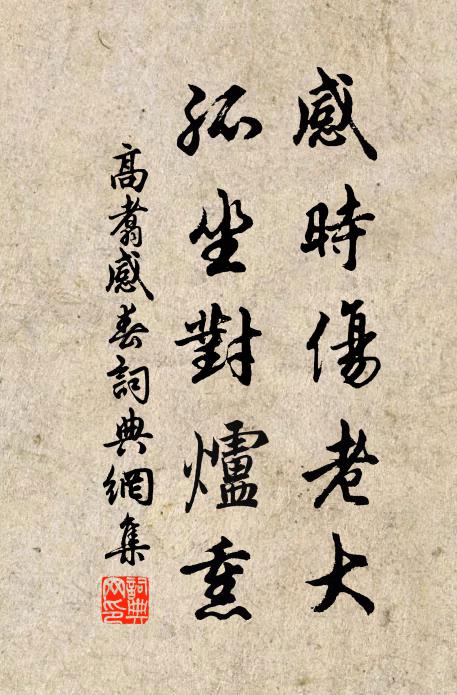 感時傷老大
孤坐對爐熏
高翥感春詞典網集
詞典網印